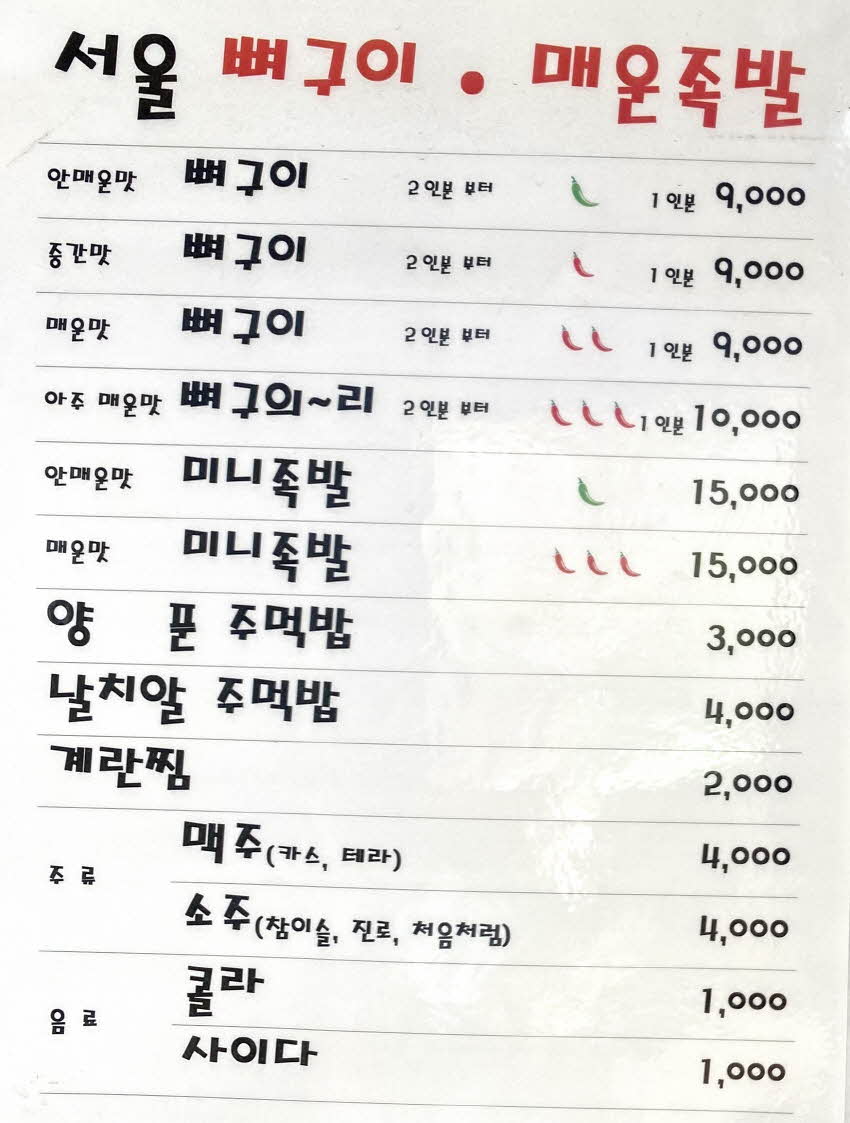 서울 뼈구이 • 매운족발
안매운맛 뼈구이 2인분 부터 1인분 9,000
중간맛 뼈구이 2인분 부터 1인분 9,000
매운맛 뼈구이 2인분 부터 1인분 9,000
아주 매운맛 뼈구의~리 2인분 부터 1인분 10,000
안매운맛 미니족발 15,000
매운맛 미니족발 15,000
양푼 주먹밥 3,000
날치알 주먹밥 4,000
계란찜 2,000
주류 맥주(카스, 테라) 4,000
소주(참이슬, 진로, 처음처럼) 4,000
음료 콜라 1,000
사이다 1,000